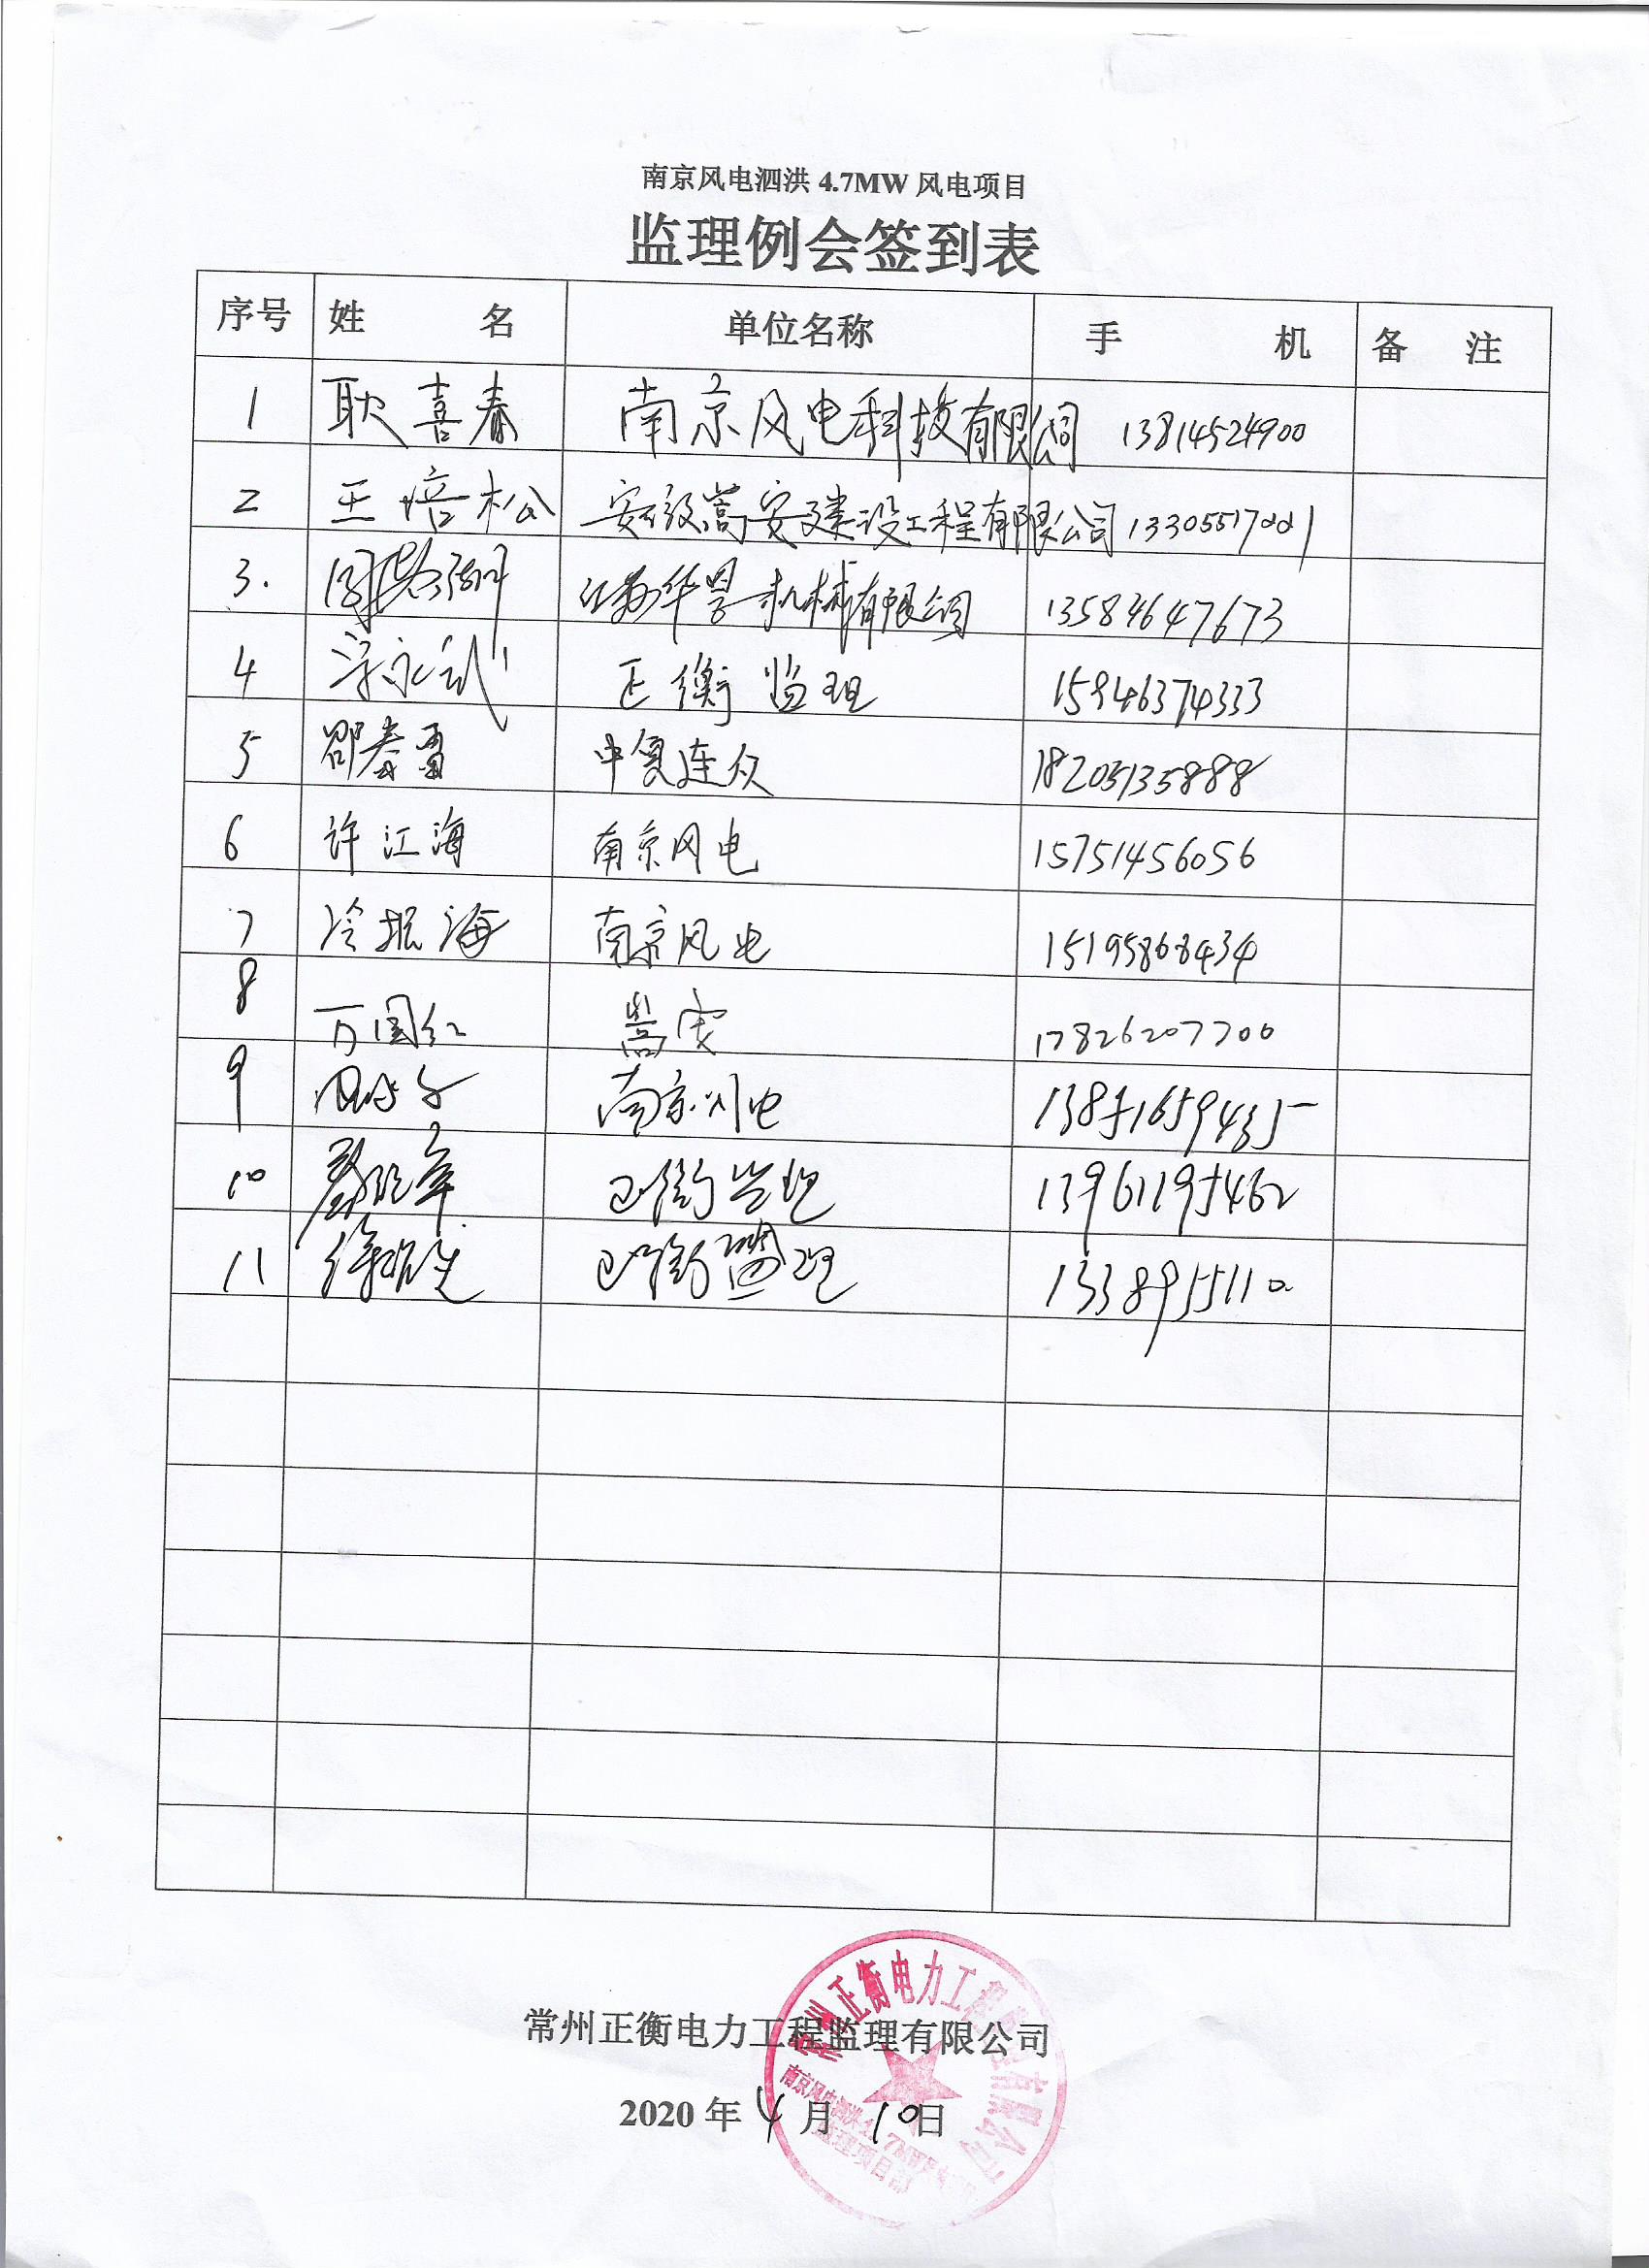 南京风电泗洪 4.7MW 风电项目
监理例会签到表
序号 姓 名 单位名称 手 机 备 注
1 耿喜春 南京风电科技有限公司 13814524900
2 王培松 安徽嵩安建设工程有限公司
3. 江苏华昱机械有限公司 13584647673
4 正衡监理
5 邵春雷 中复连众 18205135888
6 许江海 南京风电 15751456056
7 冷振海 南京风电 15195868434
8 万国红 嵩安 17826207700
9 南京风电 13851659435
10 正衡监理 13961195462
11 正衡监理
常州正衡电力工程监理有限公司
2020 年 4 月 10 日
常州正衡电力工程监理有限公司
南京风电泗洪4.7MW风电项目
监理项目部